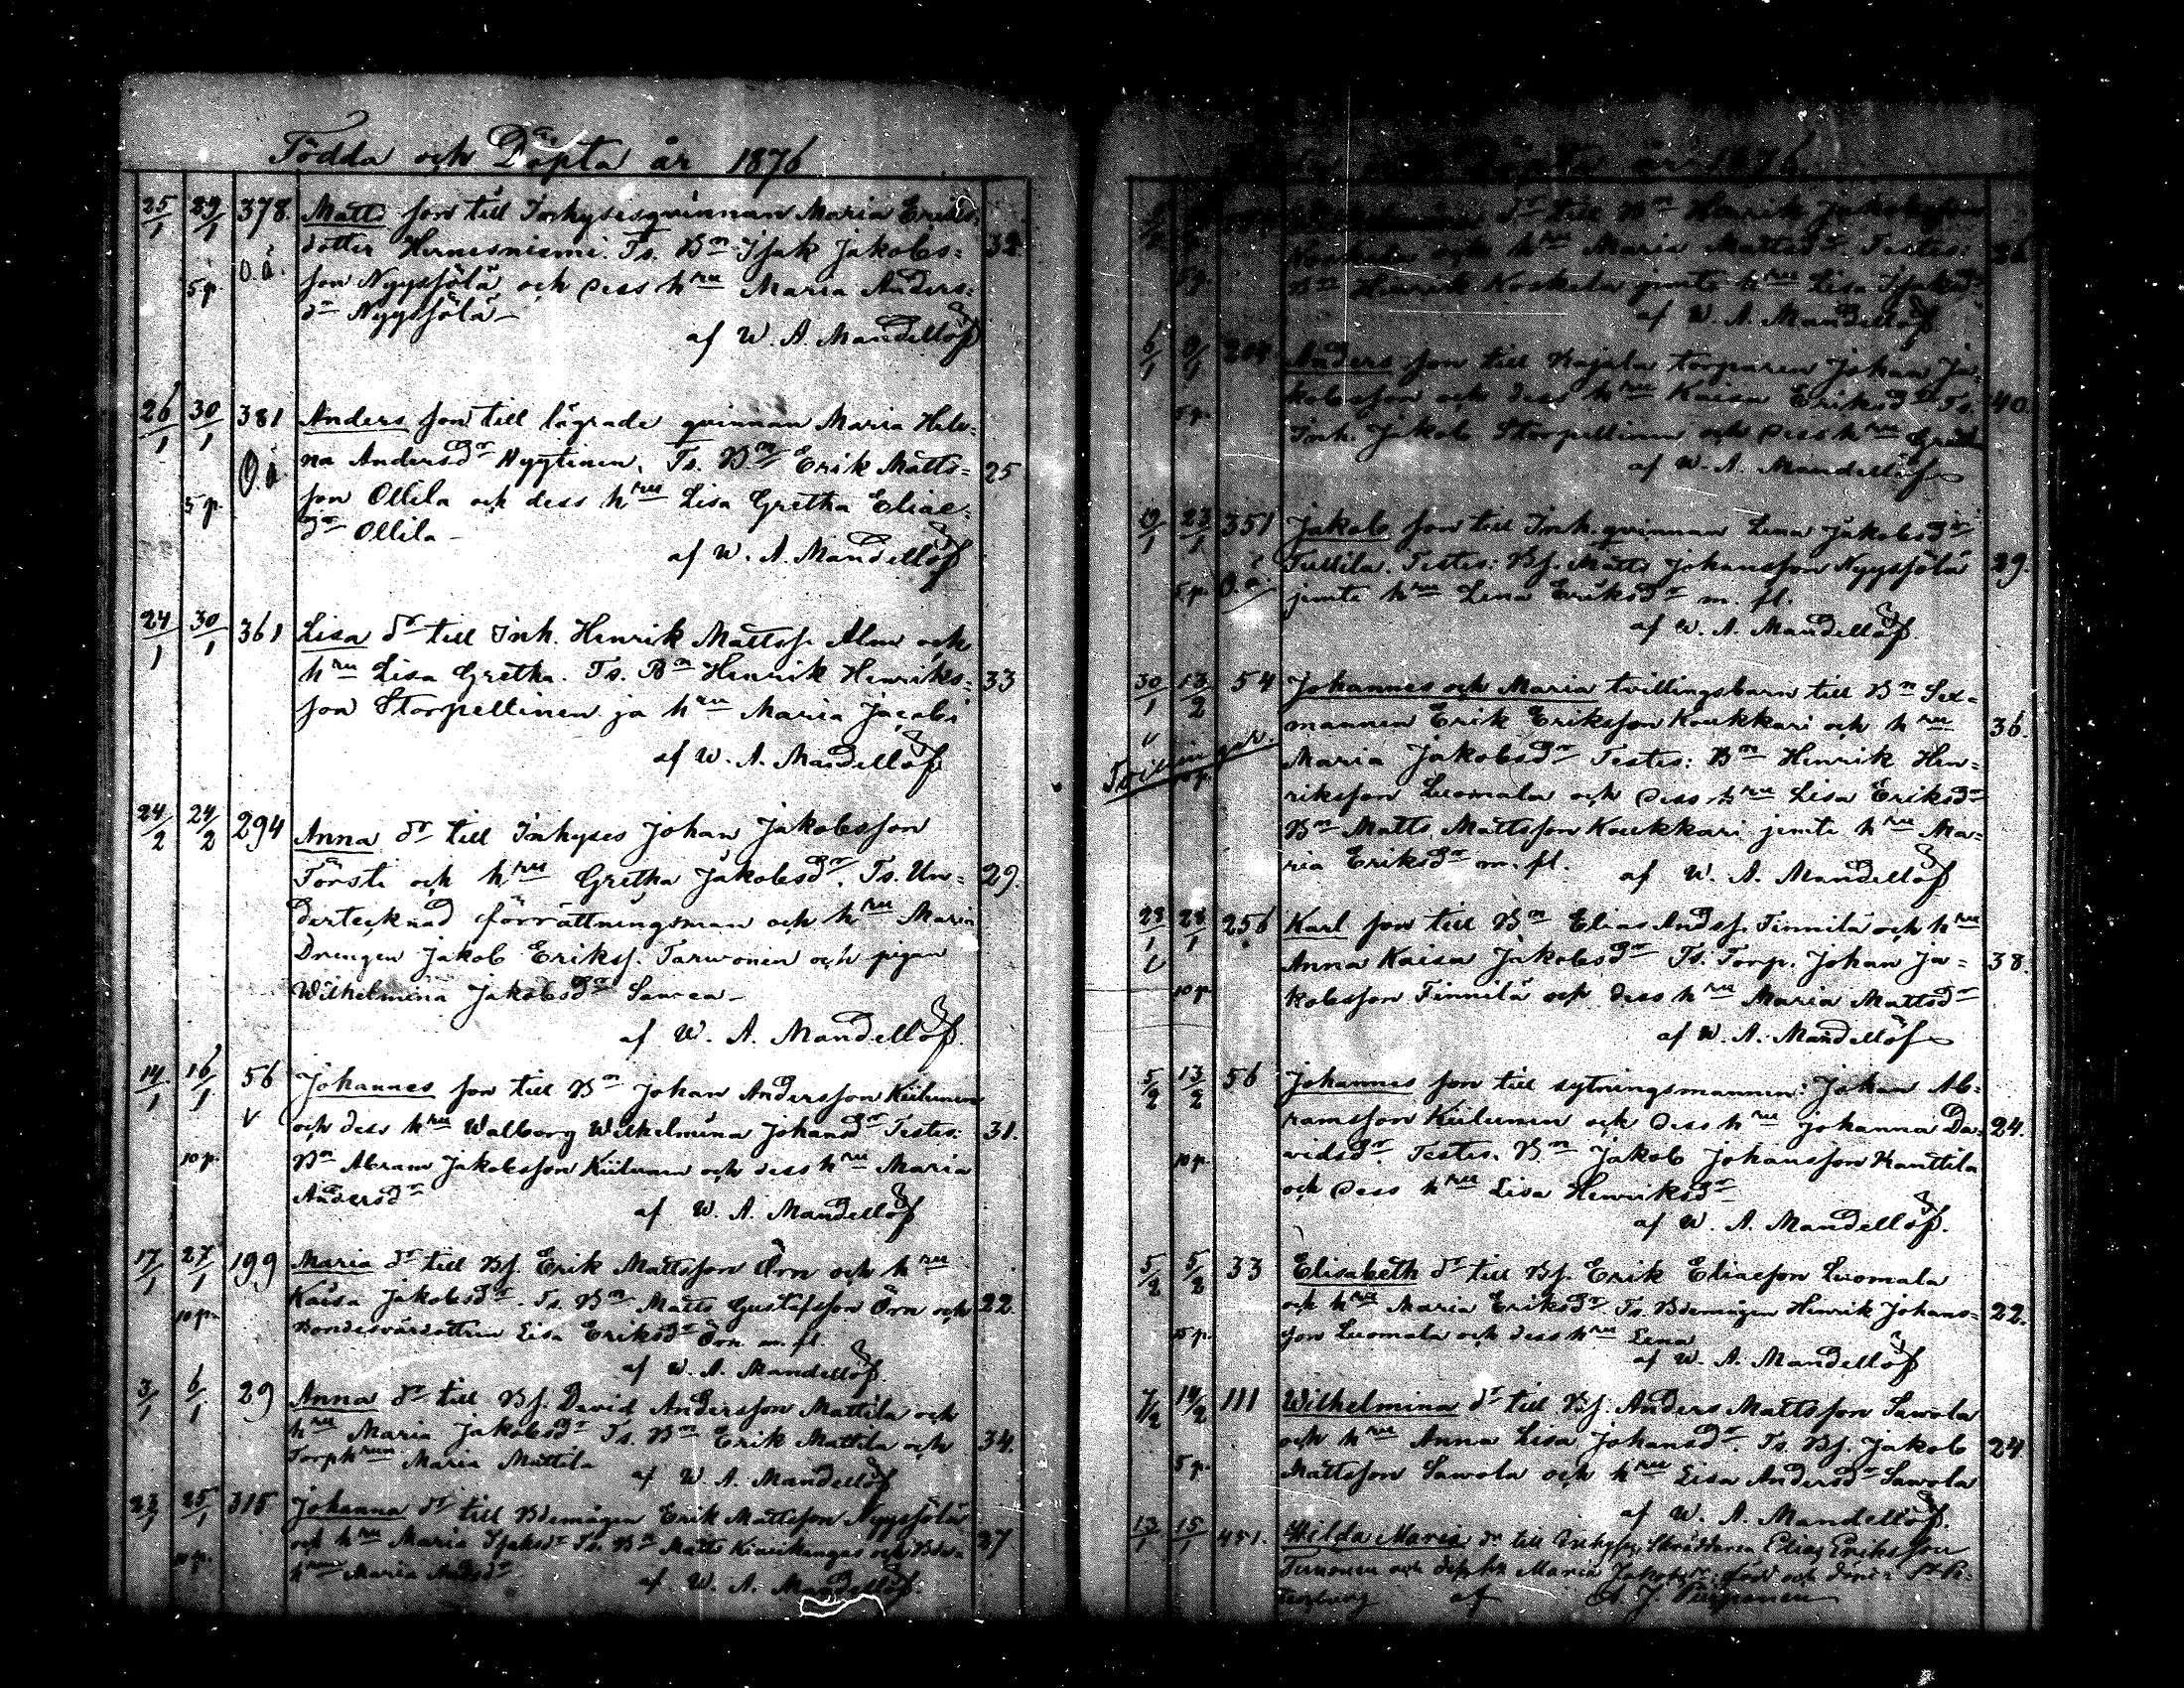 Födda och Döpta år 1876
25/1 29/1 378. Matts son till Inhysesqvinnan Maria Eriks-
dotter Hernesniemi. Ts. Bn Isak Jakobs= 32.
5p. O.ä. son Nyyssölä och dess hru Maria Anders-
dr Nyyssölä –
af W. A. Mandellöf
26/1 30/1 381 Anders son till lägrade qvinnan Maria Hele-
O.ä. na Andersdr Nygtinen. Ts. Bn Erik Matts= 25
5p. son Ollila och dess hru Lisa Gretha Eliae-
dr Ollila –
af W. A. Mandellöf
24/1 30/1 361 Lisa dr till Inh. Henrik Mattss. Alm och
hru Lisa Gretha. Ts. Bn Henrik Henriks= 33
son Storpellinen ja hru Maria Jacobi
af W. A. Mandellöf
24/2 24/2 294 Anna dr till Inhyses Johan Jakobsson
Törsti och hru Gretha Jakobsdr. Ts. Un= 29.
dertecknad förrättningsman och hru Maria
Drengen Jakob Erikss. Tarwonen och pigan
Wilhelmina Jakobsdr
af W. A. Mandellöf.
14/1 16/1 56 Johannes son till Bn Johan Andersson Kiilunen
v och dess hru Walborg Wilhelmina Johansdr Testes: 31.
10p. Bn Abram Jakobsson Kiilunen och dess hru Maria
Andersdr
af W. A. Mandellöf
17/1 27/1 199 Maria dr till Bs. Erik Mattsson Örn och hru
Kaisa Jakobsdr. Ts. Bn Matts Gustafsson Örn och 22.
10p. Bondesvärdottren Lisa Eriksdr Örn m. fl.
af W. A. Mandellöf.
3/1 6/1 29 Anna dr till Bs. David Andersson Mattila och
hru Maria Jakobsdr Ts. Bn Erik Mattila och 34.
Torphrun Maria Mattila
af W. A. Mandellöf
23/1 25/1 315 Johanna dr till Bdemågen Erik Mattsson Nyyssölä
och hru Maria Isaksdr Ts. Bn Matts Kiwikangas och 27
10p. hru Maria Andsdr
af W. A. Mandellöf.
år 1876.
dr till Bn Henrik Jakobsson
och hru Maria Mattsdr Testes: 36
5p. Bn Henrik Koskela jemte hru Lisa Isaksdr
af W. A. Mandellöf.
6/1 9/1 204 Anders son till Kajala torparen Johan Ja-
5p. kobsson och dess hru Kaisa Eriksdr Ts. 40.
Inh. Jakob Storpellinen och dess hru Greta
af W. A. Mandellöf
19/1 23/1 351 Jakob son till Inh.qvinnan Lena Jakobsdr
Tullila. Testes: Bs. Matts Johansson Nyyssölä 29.
5p. O.ä. jemte hru Lena Eriksdr m. fl.
af W. A. Mandellöf.
30/1 13/2 54 Johannes och Maria tvillingsbarn till Bn Sex-
mannen Erik Eriksson Koukkari och hru 36.
" Maria Jakobsdr Testes: Bn Henrik Hen-
10p. riksson Luomala och dess hru Lisa Eriksdr
Bn Matts Mattsson Koukkari jemte hru Ma-
ria Eriksdr m. fl. af W. A. Mandellöf
23/1 28/1 256 Karl son till Bn Elias Andss. Finnilä och hru
v Anna Kaisa Jakobsdr Ts. Torp. Johan Ja- 38.
10p. kobsson Finnilä och dess hru Maria Mattsdr
af W. A. Mandellöf
5/2 13/2 56 Johannes son till sytningsmannen: Johan Ab-
ramsson Kiilunen och dess hru Johanna Da- 24.
10p. vidsdr. Testes. Bn Jakob Johansson Kanttila
och dess hru Lisa Henriksdr
af W. A. Mandellöf.
5/2 5/2 33 Elisabeth dr till Bs. Erik Eliaeson Luomala
och hru Maria Eriksdr Ts. Bdemågen Henrik Johans- 22.
son Luomala och dess hru Lena
af W. A. Mandellöf
7/2 14/2 111 Wilhelmina dr till Bs. Anders Mattsson Sawola
och hru Anna Lisa Johansdr. Ts. Bs. Jakob 24
5p. Mattsson Sawola och hru Lisa Andersdr Sawola
af W. A. Mandellöf.
13/1 15/1 451. Hilda Maria dr till Inhyses, Skräddaren Elias Eriksson
och dess hru Maria Jakobsdr; född och döpt i St Pe-
tersburg af